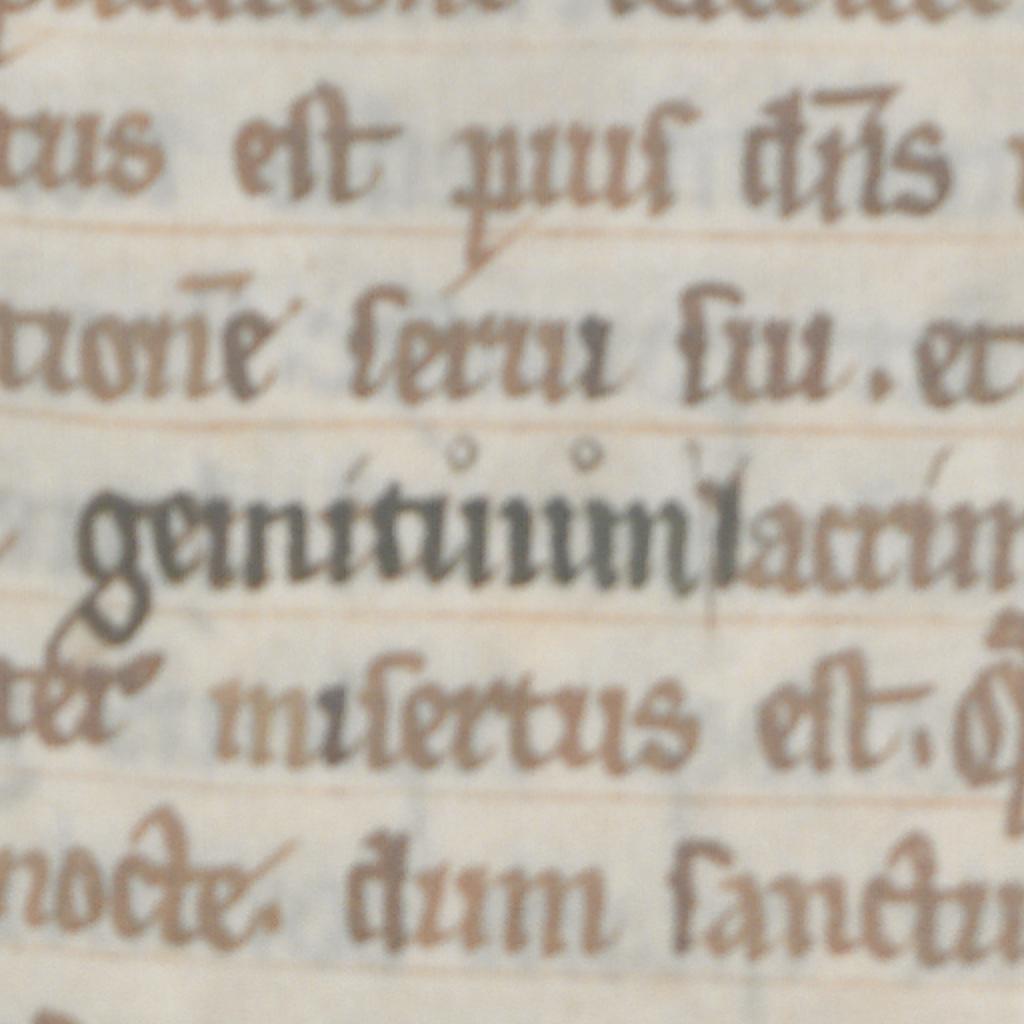 tus est pius dn̄s
tionē serui sui . et
gemituum lacrim
ter misertus est . Q
nocte . dum sanctu